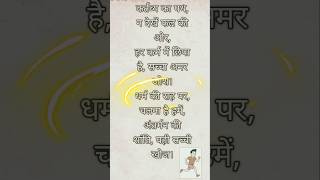 कर्तव्य का पथ,
न देखें फल की
ओर,
हर कर्म में छिपा
है, सच्चा अमर
धर्म की राह पर,
चलना है हमें,
अंतर्मन की
शांति, यही सच्ची
खोज।